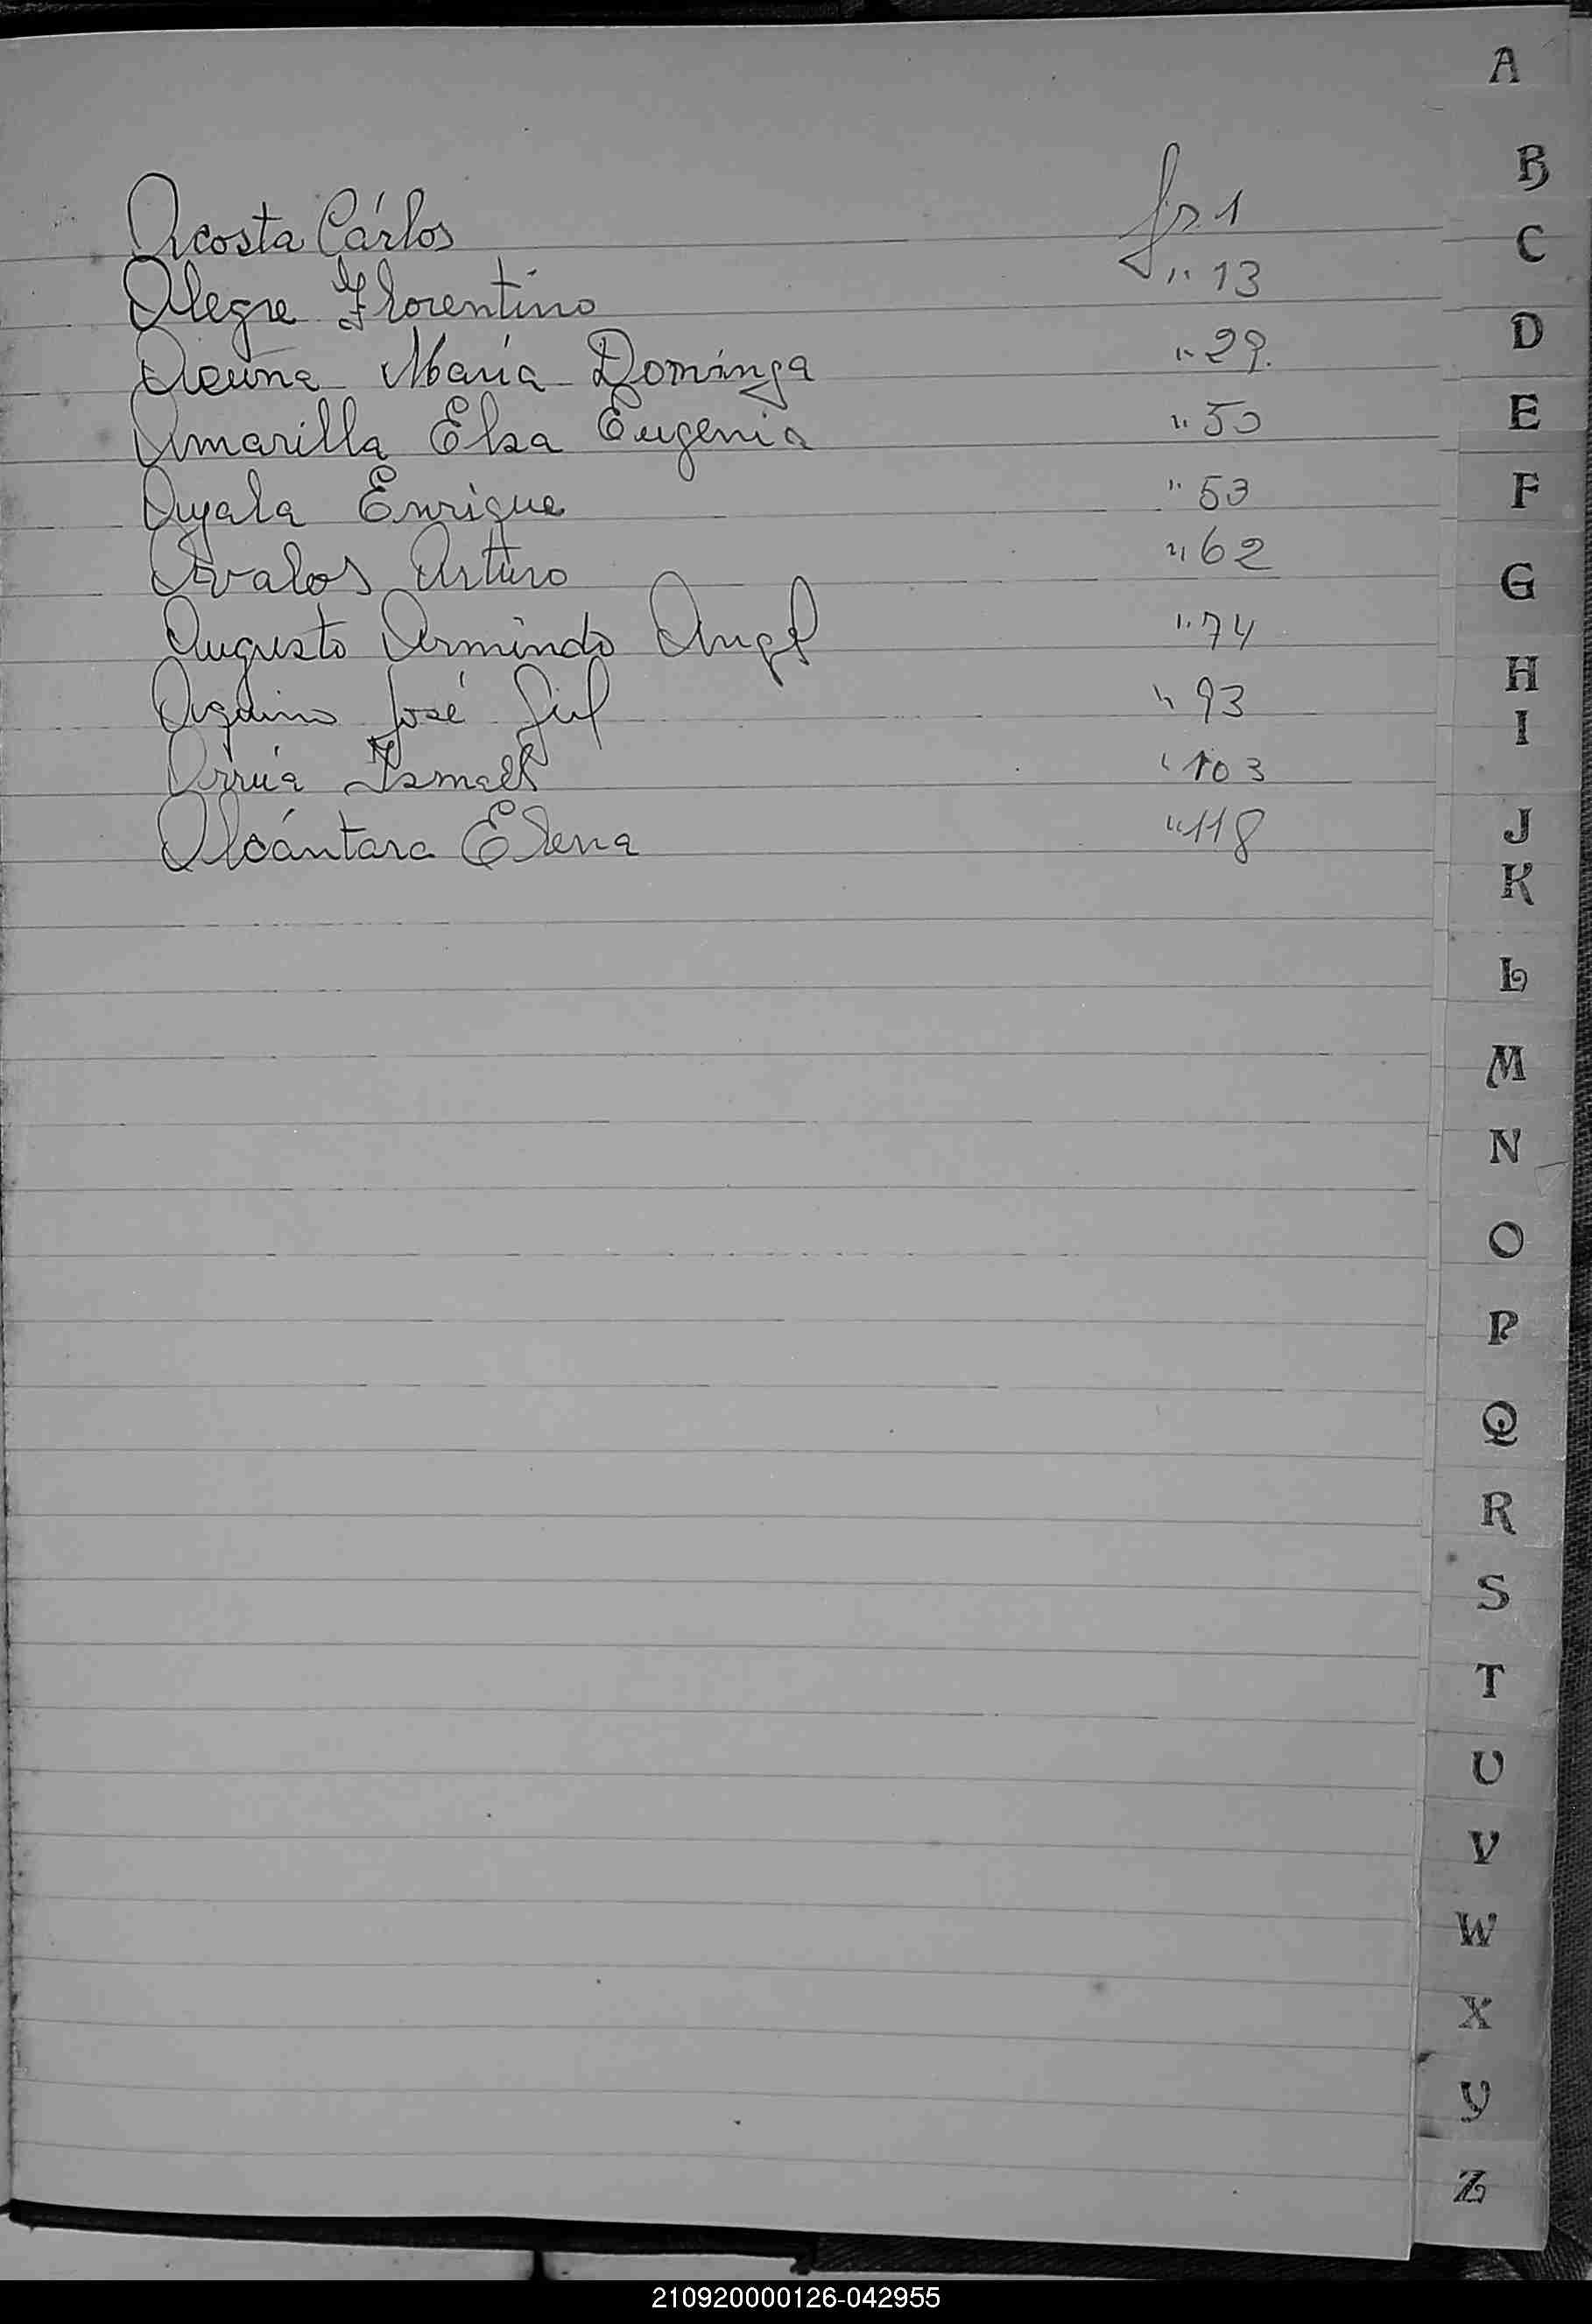 A
B
Acosta Cárlos fs. 1
C
Alegre Florentino " 13
D
Acuña María Dominga " 29.
E
Amarilla Elsa Eugenia " 50
F
Ayala Enrique " 53
Avalos Arturo " 62
G
Augusto Armindo Angel " 74
H
Aquino José Gil " 93
I
Arrúa Ismael " 103
J
Alcántara Elena " 118
K
L
M
N
O
P
Q
R
S
T
U
V
W
X
Y
Z
210920000126-042955